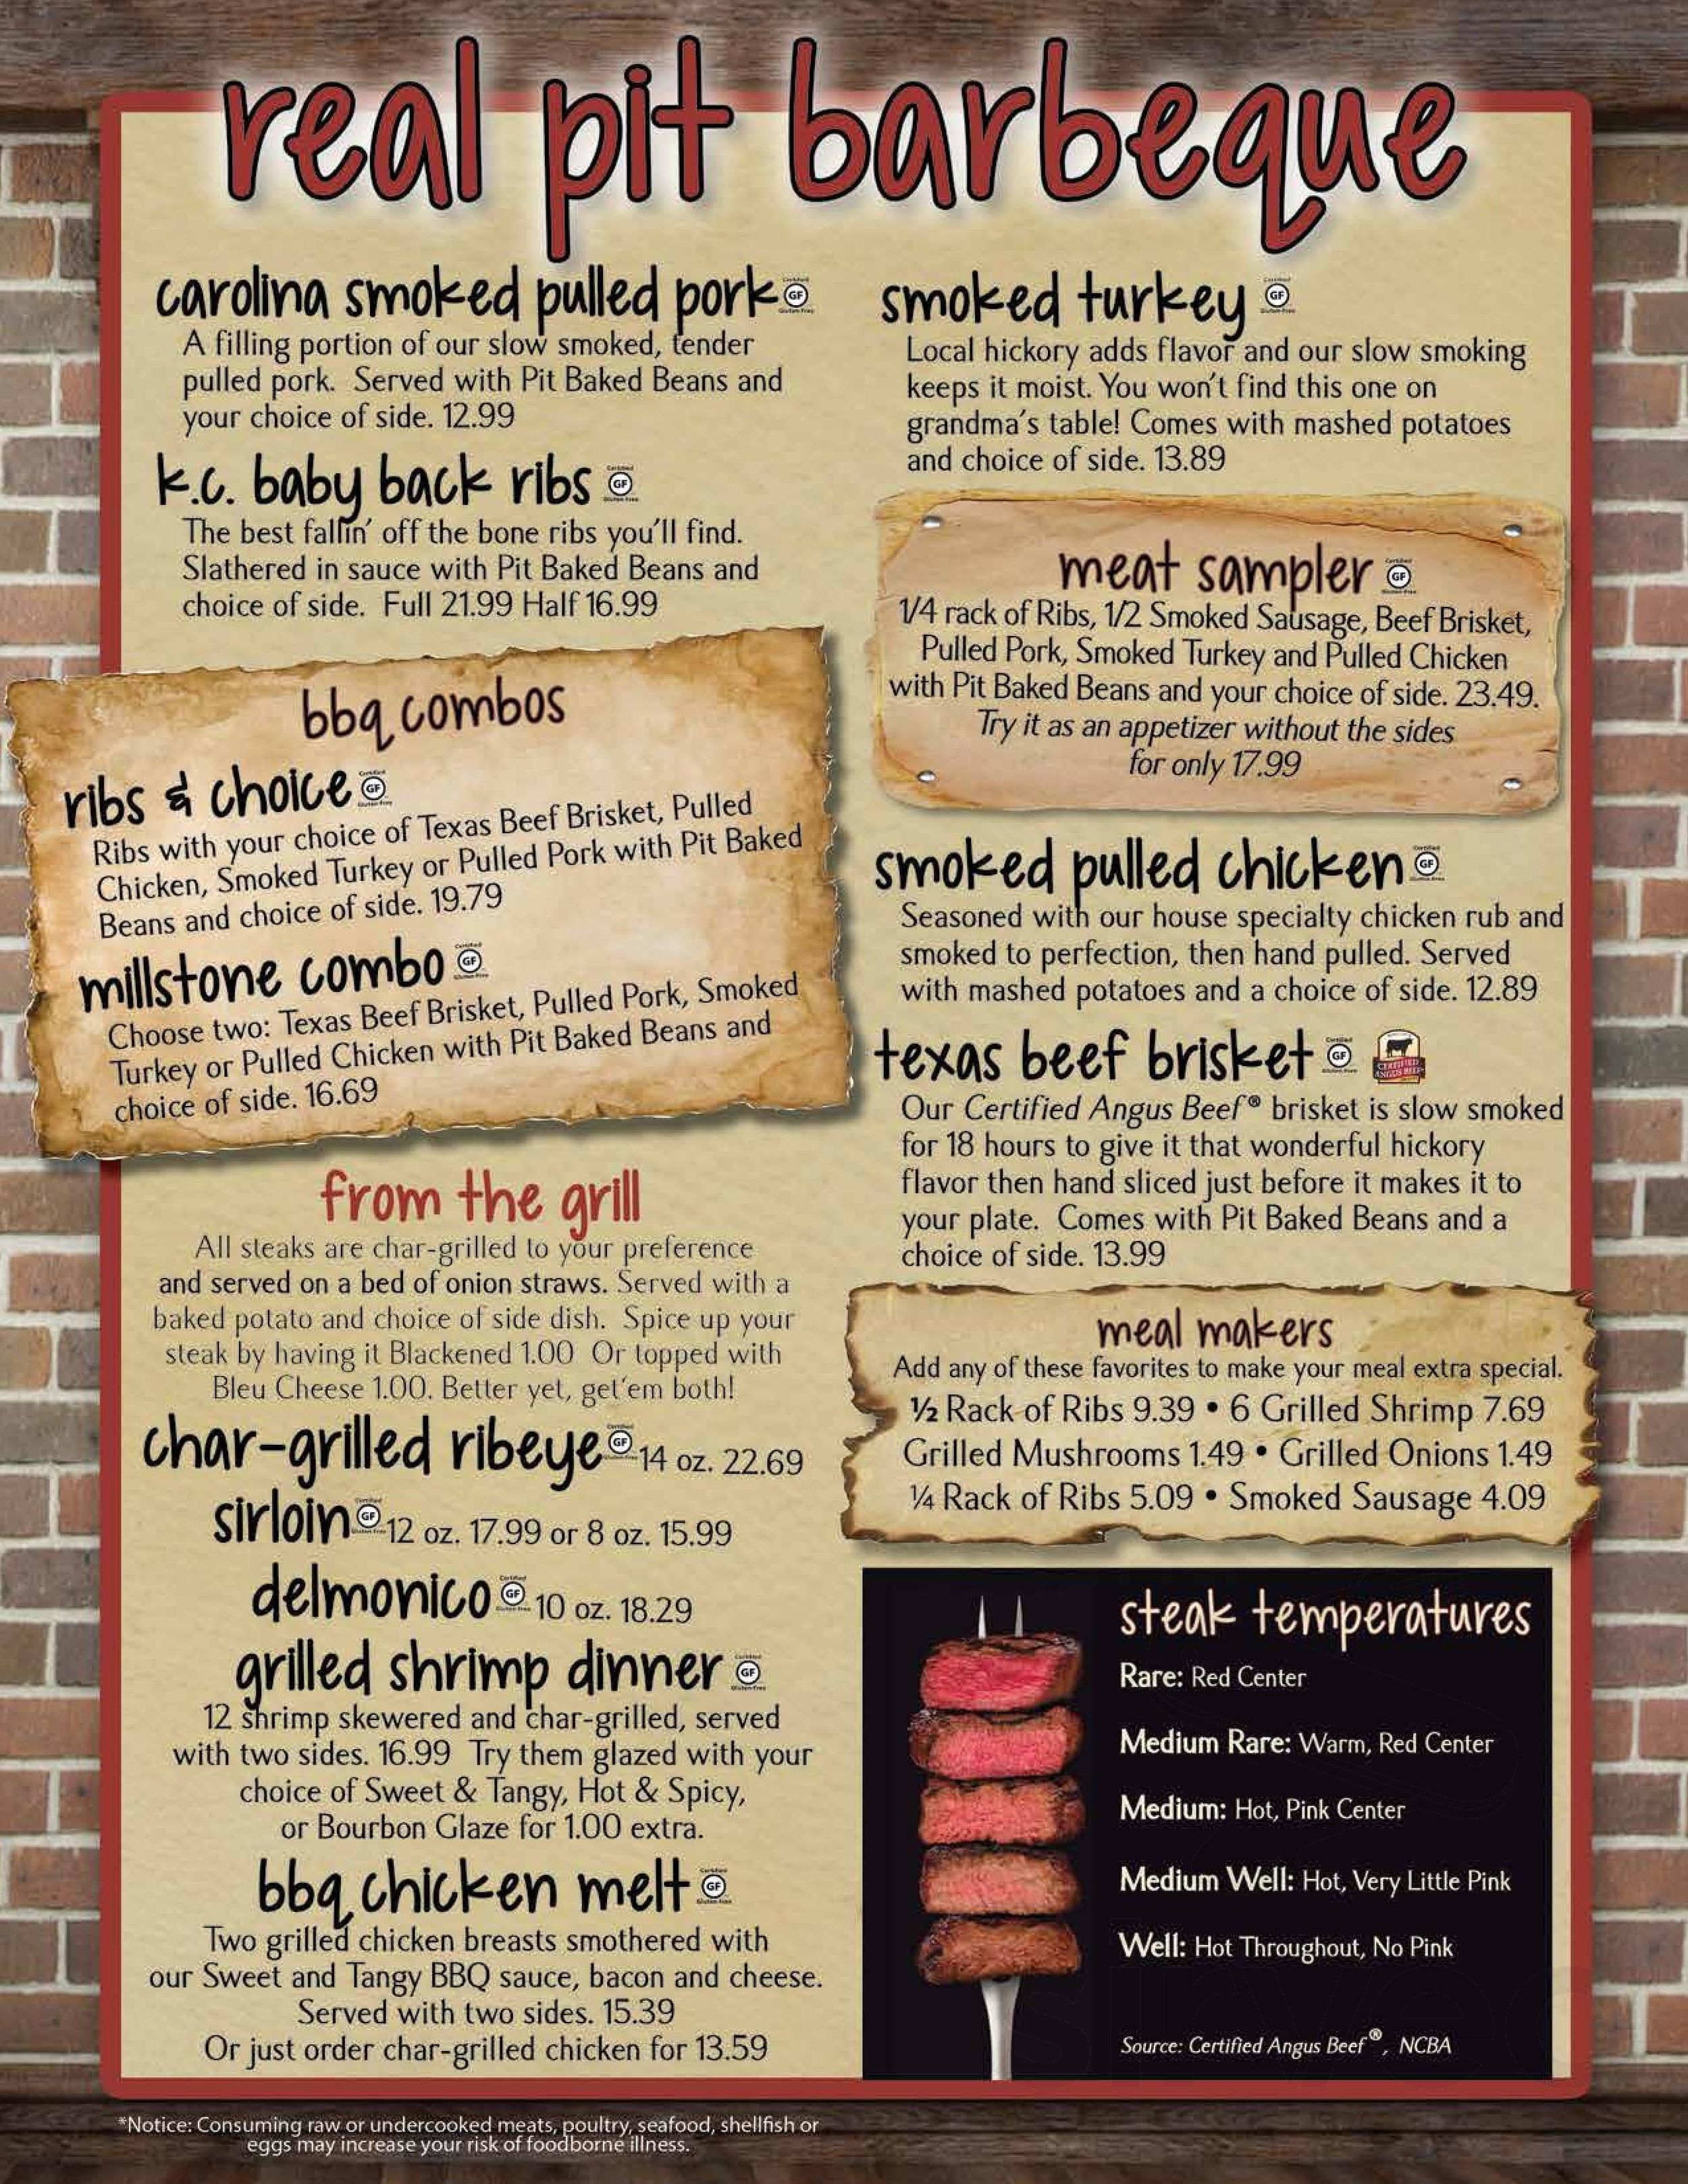 real pit barbeque
carolina smoked pulled pork
A filling portion of our slow smoked, tender
pulled pork. Served with Pit Baked Beans and
your choice of side. 12.99
k.c. baby back ribs
The best fallin' off the bone ribs you'll find.
Slathered in sauce with Pit Baked Beans and
choice of side. Full 21.99 Half 16.99
bbq combos
ribs & choice
Ribs with your choice of Texas Beef Brisket, Pulled
Chicken, Smoked Turkey or Pulled Pork with Pit Baked
Beans and choice of side. 19.79
millstone combo
Choose two: Texas Beef Brisket, Pulled Pork, Smoked
Turkey or Pulled Chicken with Pit Baked Beans and
choice of side. 16.69
from the grill
All steaks are char-grilled to your preference
and served on a bed of onion straws. Served with a
baked potato and choice of side dish. Spice up your
steak by having it Blackened 1.00 Or topped with
Bleu Cheese 1.00. Better yet, get'em both!
char-grilled ribeye GF 14 oz. 22.69
sirloin GF 12 oz. 17.99 or 8 oz. 15.99
delmonico GF 10 oz. 18.29
grilled shrimp dinner GF
12 shrimp skewered and char-grilled, served
with two sides. 16.99 Try them glazed with your
choice of Sweet & Tangy, Hot & Spicy,
or Bourbon Glaze for 1.00 extra.
bbq chicken melt GF
Two grilled chicken breasts smothered with
our Sweet and Tangy BBQ sauce, bacon and cheese.
Served with two sides. 15.39
Or just order char-grilled chicken for 13.59
smoked turkey GF
Local hickory adds flavor and our slow smoking
keeps it moist. You won't find this one on
grandma's table! Comes with mashed potatoes
and choice of side. 13.89
meat sampler GF
1/4 rack of Ribs, 1/2 Smoked Sausage, Beef Brisket,
Pulled Pork, Smoked Turkey and Pulled Chicken
with Pit Baked Beans and your choice of side. 23.49.
Try it as an appetizer without the sides
for only 17.99
smoked pulled chicken GF
Seasoned with our house specialty chicken rub and
smoked to perfection, then hand pulled. Served
with mashed potatoes and a choice of side. 12.89
texas beef brisket GF CERTIFIED ANGUS BEEF
Our Certified Angus Beef® brisket is slow smoked
for 18 hours to give it that wonderful hickory
flavor then hand sliced just before it makes it to
your plate. Comes with Pit Baked Beans and a
choice of side. 13.99
meal makers
Add any of these favorites to make your meal extra special.
½ Rack of Ribs 9.39 • 6 Grilled Shrimp 7.69
Grilled Mushrooms 1.49 • Grilled Onions 1.49
¼ Rack of Ribs 5.09 • Smoked Sausage 4.09
steak temperatures
Rare: Red Center
Medium Rare: Warm, Red Center
Medium: Hot, Pink Center
Medium Well: Hot, Very Little Pink
Well: Hot Throughout, No Pink
Source: Certified Angus Beef®, NCBA
*Notice: Consuming raw or undercooked meats, poultry, seafood, shellfish or
eggs may increase your risk of foodborne illness.